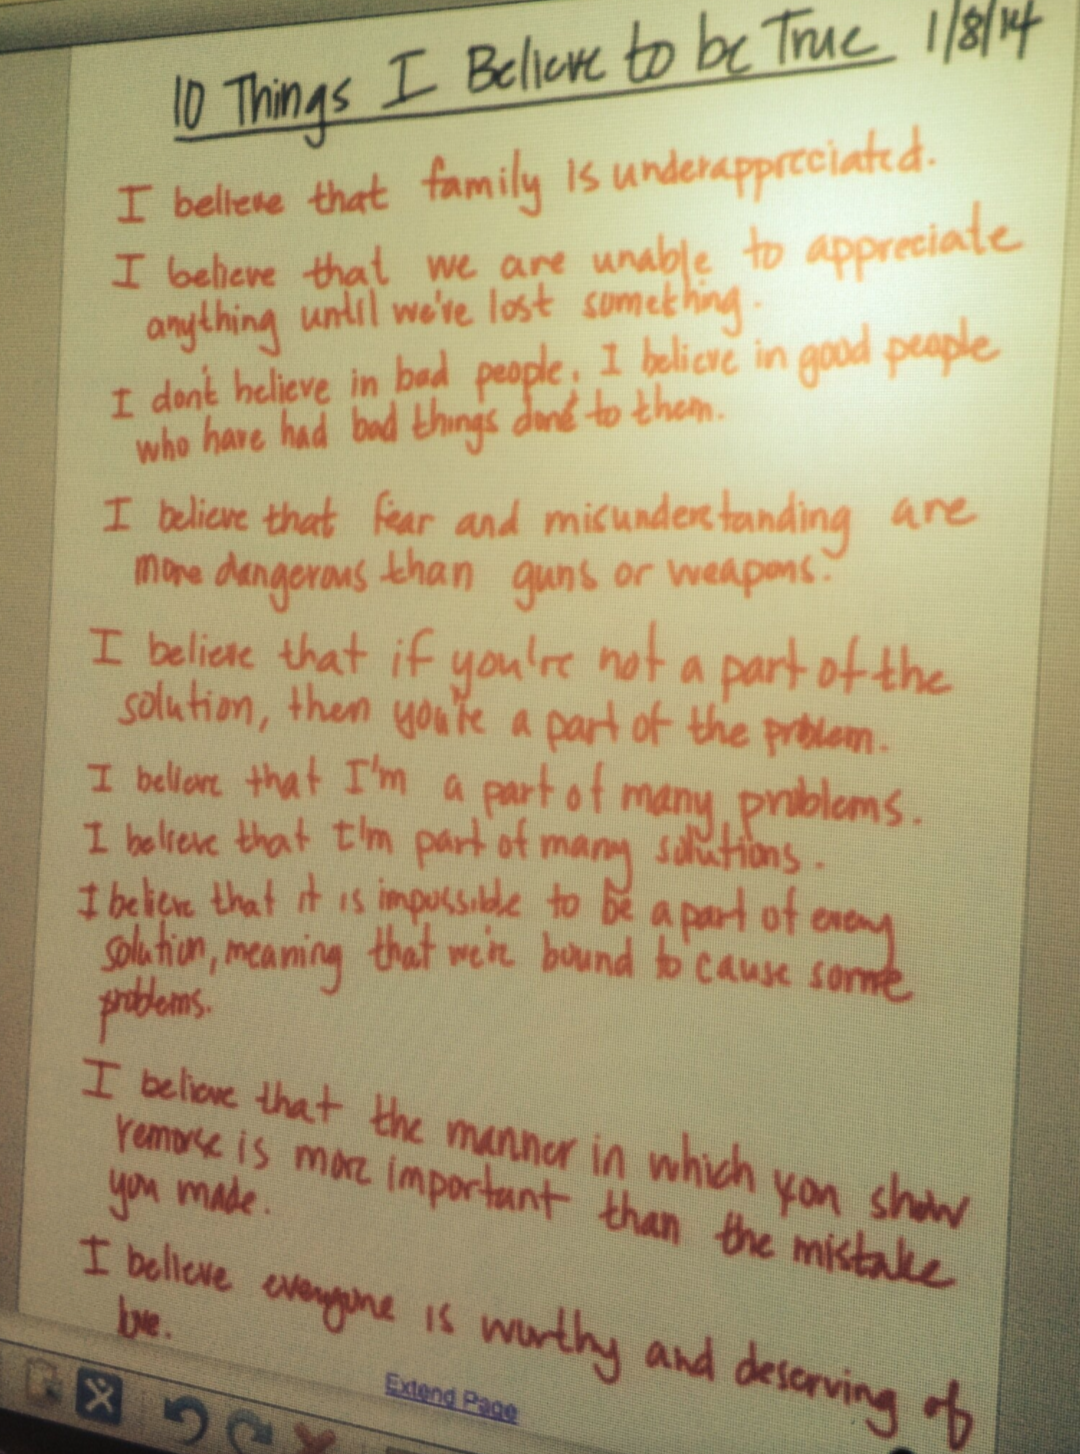 10 Things I Believe to be True 1/8/14
I believe that family is underappreciated.
I believe that we are unable to appreciate
anything until we've lost something.
I don't believe in bad people, I believe in good people
who have had bad things done to them.
I believe that fear and misunderstanding are
more dangerous than guns or weapons.
I believe that if you're not a part of the
solution, then you're a part of the problem.
I believe that I'm a part of many problems.
I believe that I'm part of many solutions.
I believe that it is impossible to be a part of every
solution, meaning that we're bound to cause some
problems.
I believe that the manner in which you show
remorse is more important than the mistake
you made.
I believe everyone is worthy and deserving of
love.
Extend Page